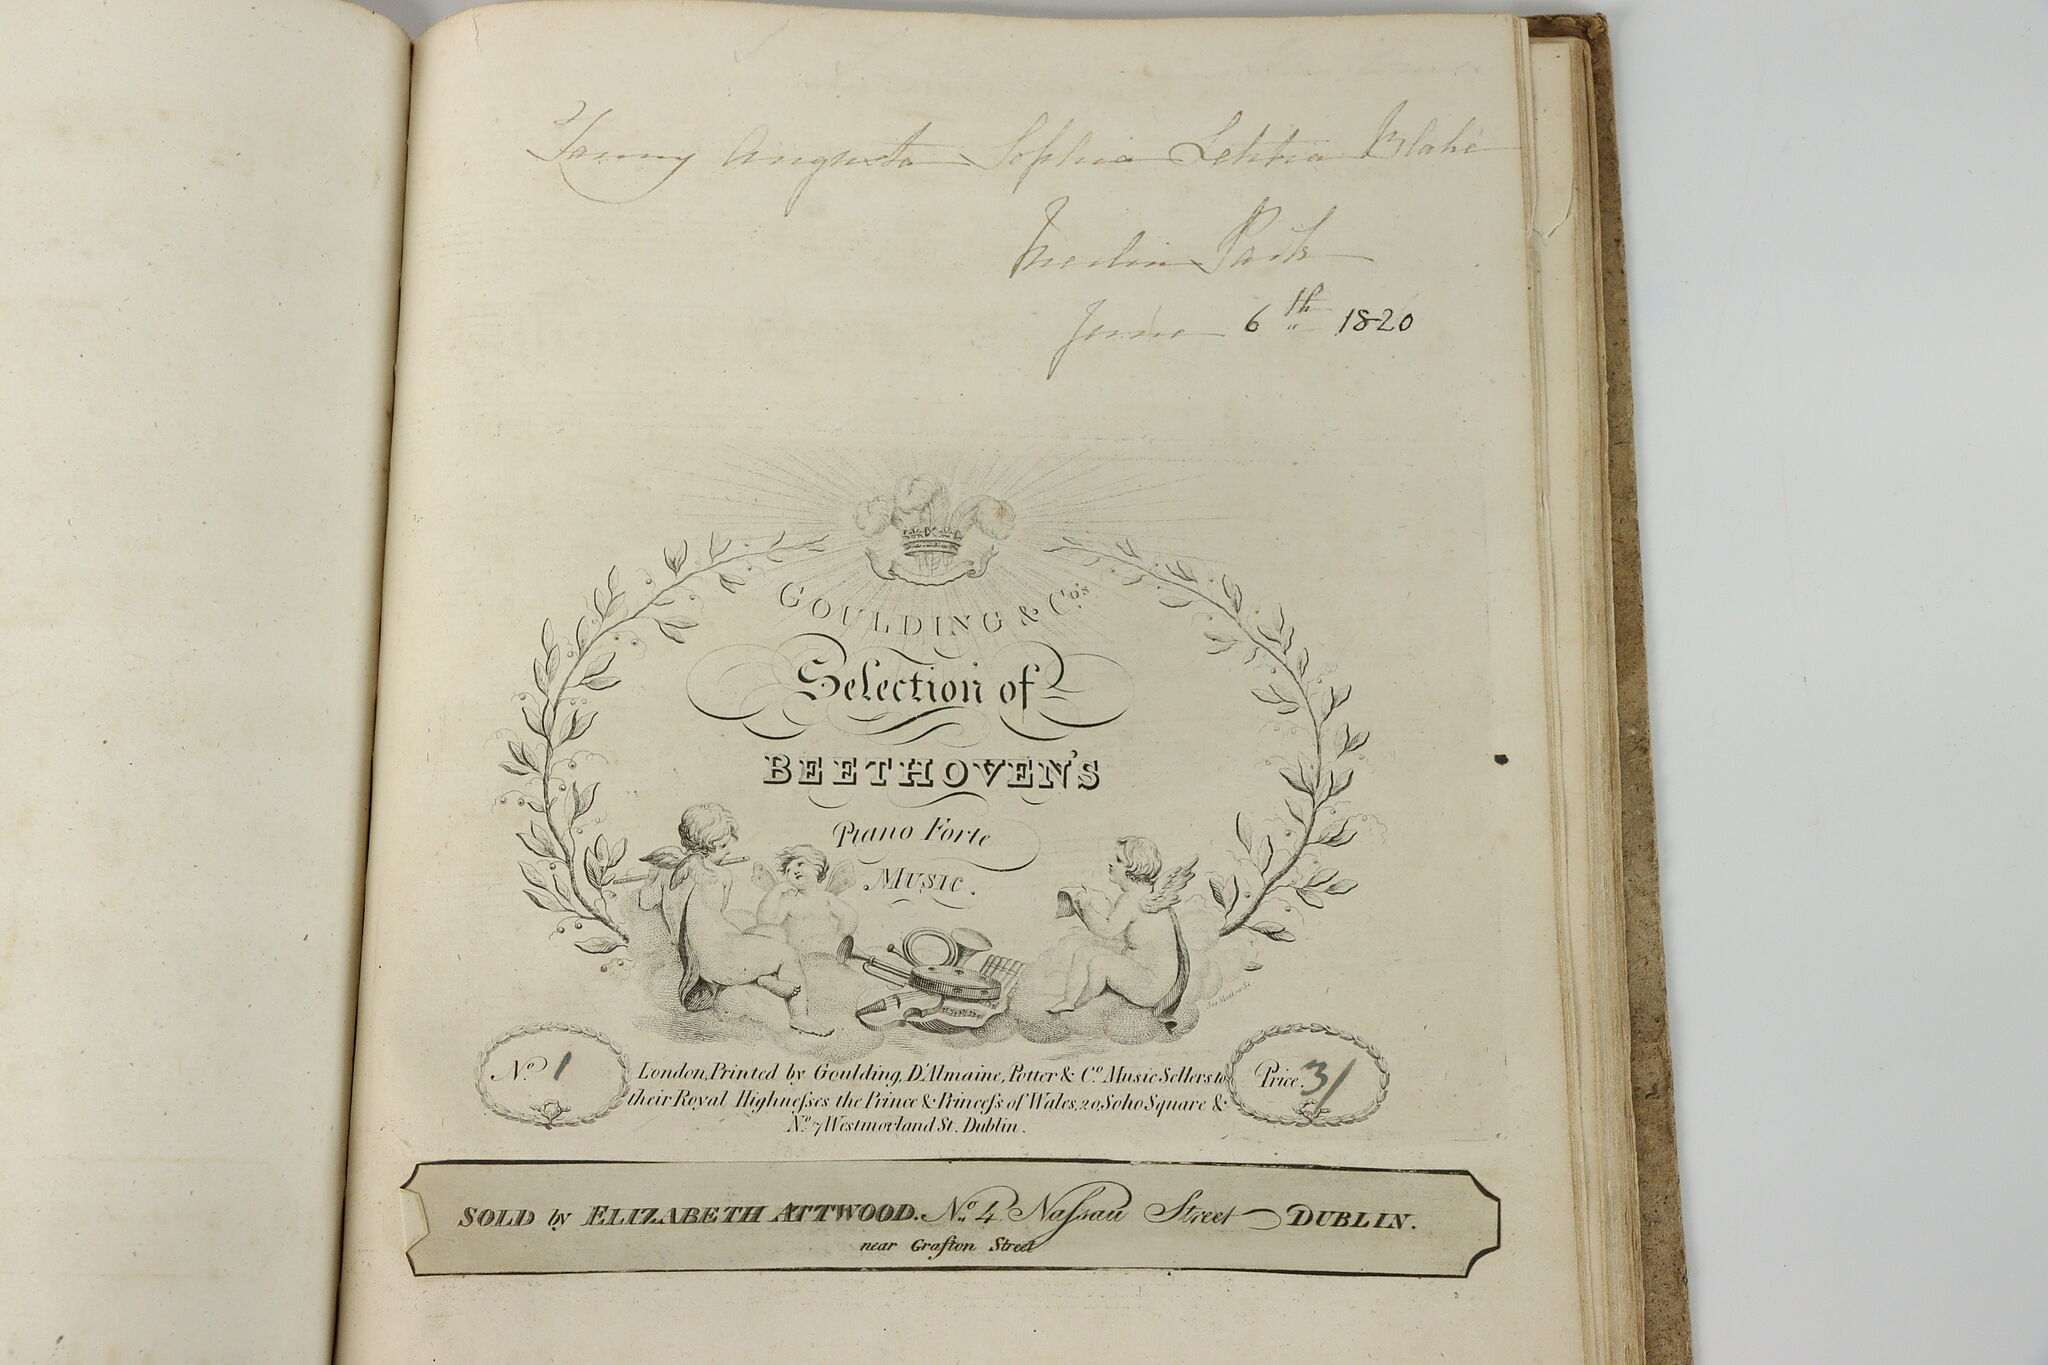 Fanny Augusta Sophia Letitia Blake
Merlin Park
June 6th 1820
GOULDING & Co's
Selection of
BEETHOVEN'S
Piano Forte
MUSIC.
No 1
London, Printed by Goulding, D'Almaine, Potter & Co. Music Sellers to
their Royal Highneſses the Prince & Princeſs of Wales, 20, Soho Square &
No. 7 Westmorland St. Dublin.
Price 3/
SOLD by ELIZABETH ATTWOOD. No. 4 Naſsau Street DUBLIN.
near Grafton Street